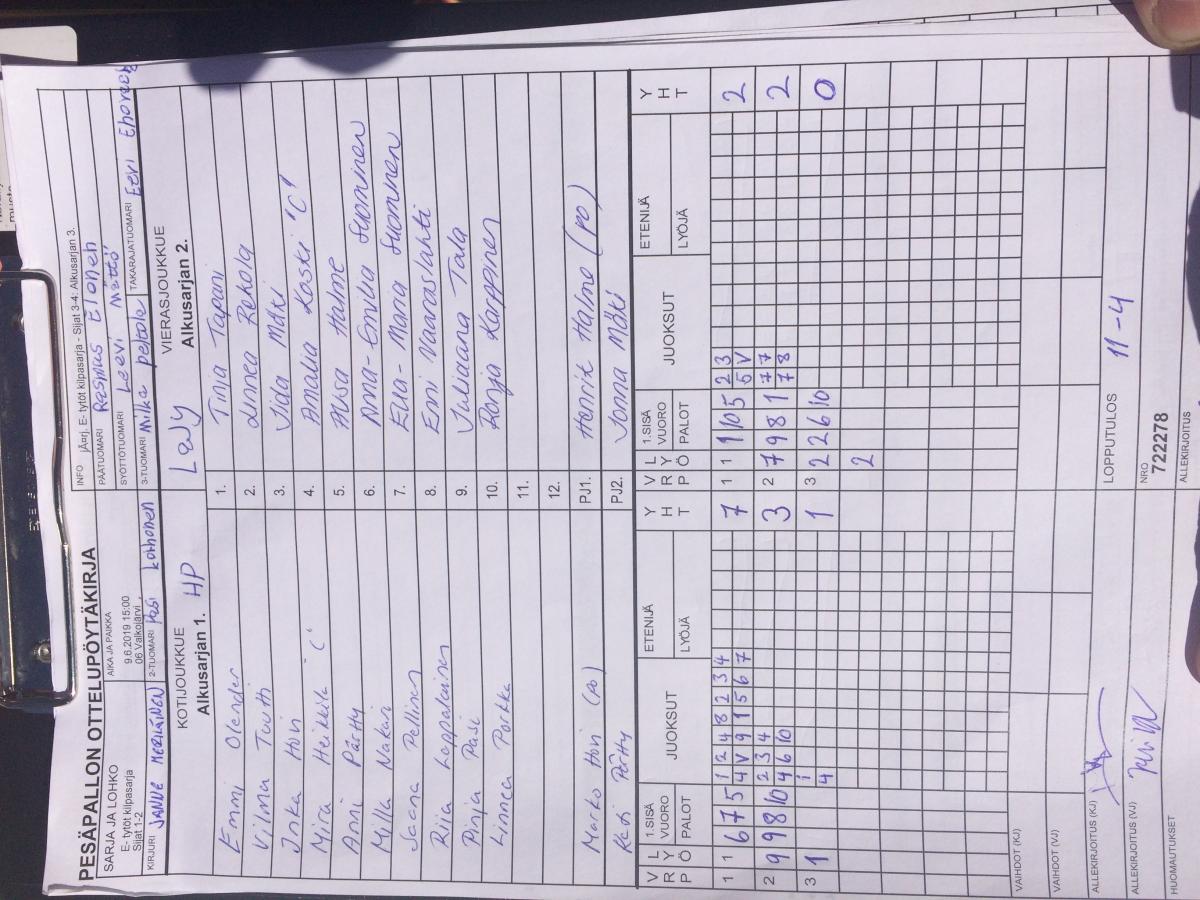 PESÄPALLON OTTELUPÖYTÄKIRJA
INFO
E- tytöt kilpasarja - Sijat 3-4: Alkusarjan 3.
SARJA JA LOHKO
E- tytöt kilpasarja
Sijat 1-2
AIKA JA PAIKKA
9.6.2019 15:00
06 Valkojärvi
PÄÄTUOMARI Rasmus Eloneh
SYÖTTÖTUOMARI Leevi Mättö
KIRJURI JANNE MERILÄINEN
2-TUOMARI Pasi
3-TUOMARI Mika Peltola
TAKARAJATUOMARI Eevi
KOTIJOUKKUE
Alkusarjan 1. HP
VIERASJOUKKUE
LaJy Alkusarjan 2.
Emmi Olender 1. Tinja Tapani
Vilma Tuutti 2. Linnea Rekola
Inka Hovi 3. Viola Mäki
Mira Heikkilä "C" 4. Amalia Koski "C"
Anni Pärtty 5. Alisa Halme
Milla Nakari 6. Anna-Emilia Suominen
Jaana Pellinen 7. Ella-Maria Suominen
Riia Leppälainen 8. Emi Vaaraslahti
Pinja Pasi 9. Juliaana Tala
Linnea Parkka 10. Ronja Karppinen
11.
12.
Marko Hovi (po) PJ1. Henrik Halme (po)
Kati Pärtty PJ2. Jonna Mäki
V R P L Y Ö 1.SISÄ VUORO PALOT JUOKSUT ETENIJÄ LYÖJÄ Y H T V R P L Y Ö 1.SISÄ VUORO PALOT JUOKSUT ETENIJÄ LYÖJÄ Y H T
1 1 6 7 5 1 2 4 8 2 3 4 7 1 1 1 10 5 2 3 2
4 V 9 1 5 6 7 5 V
2 9 9 8 10 2 3 4 3 2 7 9 8 1 7 7 2
4 6 10 7 8
3 1 1 1 3 2 2 6 10 0
4 2
VAIHDOT (KJ)
VAIHDOT (VJ)
ALLEKIRJOITUS (KJ) LOPPUTULOS 11-4
ALLEKIRJOITUS (VJ) NRO
722278
HUOMAUTUKSET ALLEKIRJOITUS